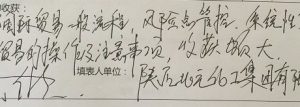 收获：
国际贸易一般流程，风险点管控，系统性
贸易的操作及注意事项，收获颇大
填表人单位：陕后北元化工集团有限